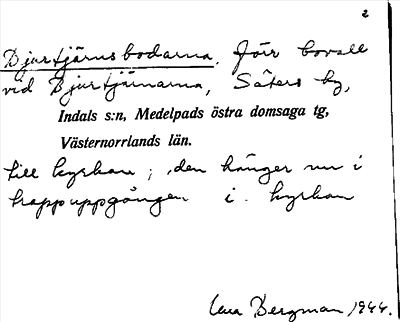 2
Djurtjärnsbodarna. Förr bovall
vid Djurtjärnarna, Säters by,
Indals s:n, Medelpads östra domsaga tg,
Västernorrlands län.
till kyrkan; den hänger nu i
trappuppgången i kyrkan
Bergman 1944.